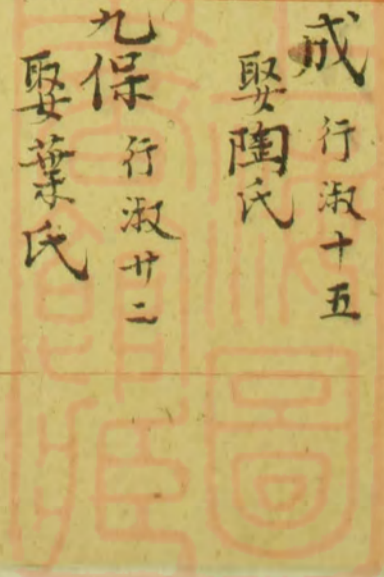 成 行淑十五
娶陶氏
九保 行淑廿二
娶葉氏
圖